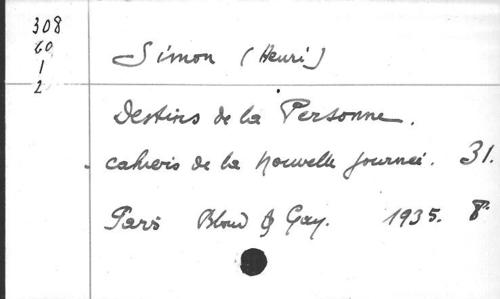 308
60
1
2
Simon (Henri)
Destins de la Personne.
cahiers de la Nouvelle Journée. 31.
Paris Bloud & Gay. 1935. 8°